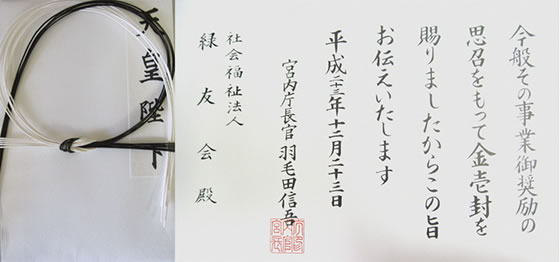 今般その事業御奨励の
思召をもって金壱封を
賜りましたからこの旨
お伝えいたします
平成二十三年十二月二十三日
宮内庁長官 羽毛田信吾
社会福祉法人
緑友会殿
天皇陛下